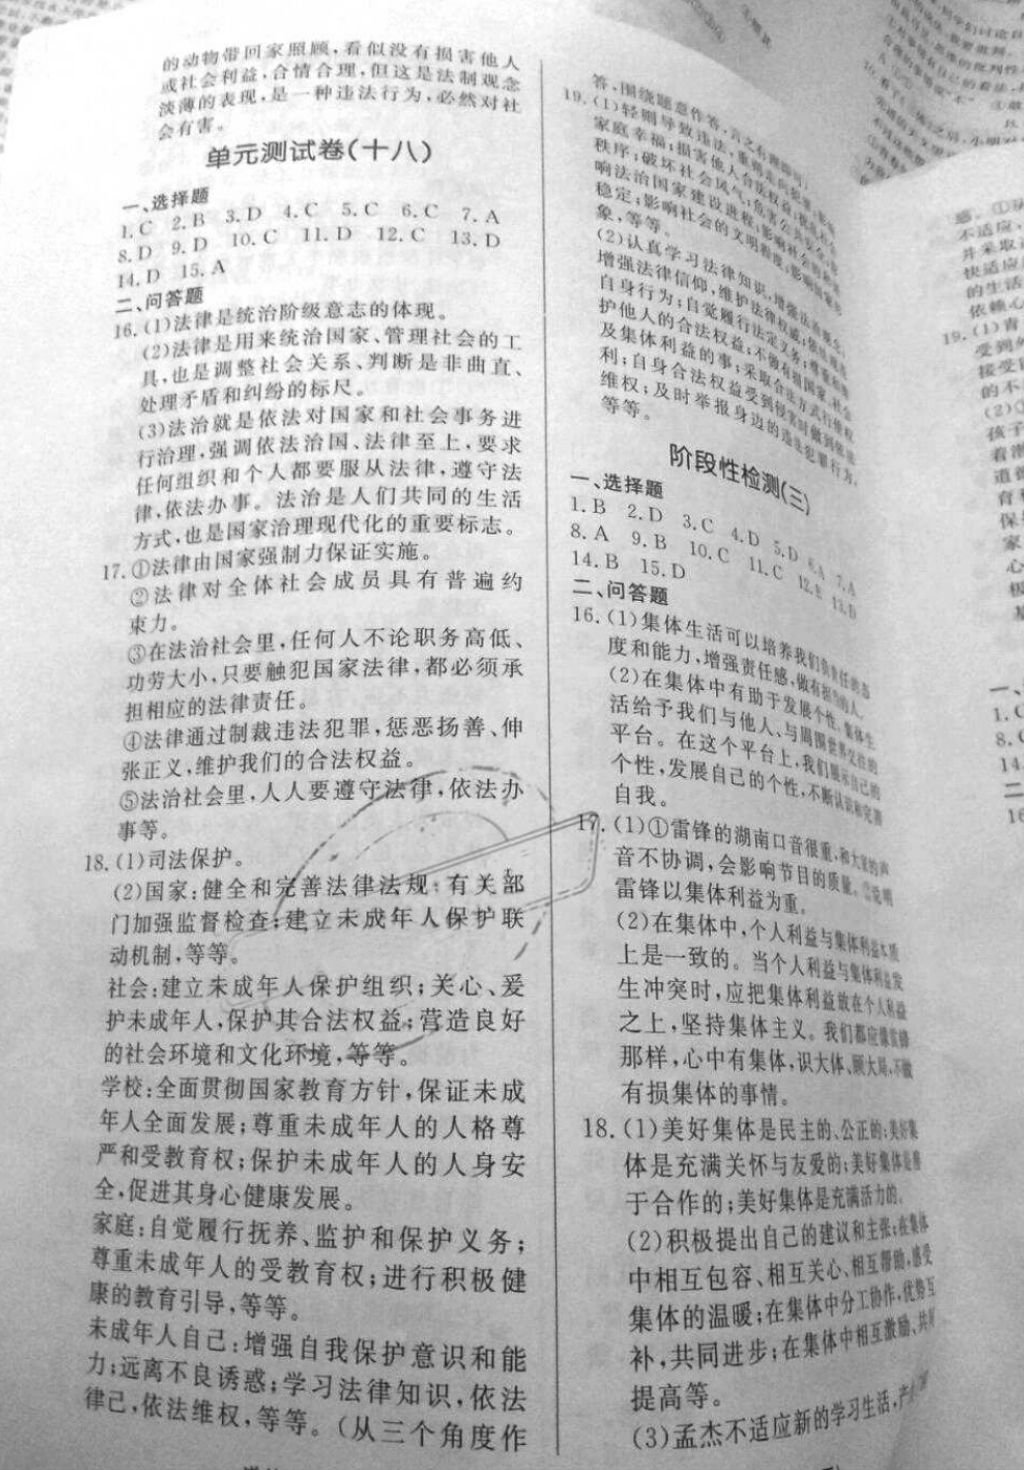 的动物带回家照顾,看似没有损害他人
或社会利益,合情合理,但这是法制观念
淡薄的表现,是一种违法行为,必然对社
会有害。
单元测试卷(十八)
一、选择题
1.C 2.B 3.D 4.C 5.C 6.C 7.A
8.D 9.D 10.C 11.D 12.C 13.D
14.D 15.A
二、问答题
16.(1)法律是统治阶级意志的体现。
(2)法律是用来统治国家、管理社会的工
具,也是调整社会关系、判断是非曲直、
处理矛盾和纠纷的标尺。
(3)法治就是依法对国家和社会事务进
行治理,强调依法治国、法律至上,要求
任何组织和个人都要服从法律,遵守法
律,依法办事。法治是人们共同的生活
方式,也是国家治理现代化的重要标志。
17.①法律由国家强制力保证实施。
②法律对全体社会成员具有普遍约
束力。
③在法治社会里,任何人不论职务高低、
功劳大小,只要触犯国家法律,都必须承
担相应的法律责任。
④法律通过制裁违法犯罪,惩恶扬善、伸
张正义,维护我们的合法权益。
⑤法治社会里,人人要遵守法律,依法办
事等。
18.(1)司法保护。
(2)国家:健全和完善法律法规;有关部
门加强监督检查;建立未成年人保护联
动机制,等等。
社会:建立未成年人保护组织;关心、爱
护未成年人,保护其合法权益;营造良好
的社会环境和文化环境,等等。
学校:全面贯彻国家教育方针,保证未成
年人全面发展;尊重未成年人的人格尊
严和受教育权;保护未成年人的人身安
全,促进其身心健康发展。
家庭:自觉履行抚养、监护和保护义务;
尊重未成年人的受教育权;进行积极健
康的教育引导,等等。
未成年人自己:增强自我保护意识和能
力;远离不良诱惑;学习法律知识,依法
律己,依法维权,等等。(从三个角度作
答,围绕题意作答,言之有理即可)
19.(1)轻则导致违法,重则走向犯罪;影响
家庭幸福;损害他人合法权益;扰乱社会
秩序;破坏社会风气;危害公共安全;影
响法治国家建设进程;影响社会和谐
稳定;影响社会的文明程度;影响国家形
象,等等。
(2)认真学习法律知识,增强法治观念;
增强法律信仰,维护法律权威;依法规范
自身行为;自觉履行法定义务;尊重和维
护他人的合法权益;不做有损国家、社会
及集体利益的事;采取合法方式行使权
利;自身合法权益受到侵害时做到依法
维权;及时举报身边的违法犯罪行为,
等等。
阶段性检测(三)
一、选择题
1.B 2.D 3.C 4.D 5.D 6.A 7.A
8.A 9.B 10.C 11.C 12.B 13.D
14.B 15.D
二、问答题
16.(1)集体生活可以培养我们负责任的态
度和能力,增强责任感,做有担当的人。
(2)在集体中有助于发展个性。集体生
活给予我们与他人、与周围世界交往的
平台。在这个平台上,我们展示自己的
个性,发展自己的个性,不断认识和完善
自我。
17.(1)①雷锋的湖南口音很重,和大家的声
音不协调,会影响节目的质量。②说明
雷锋以集体利益为重。
(2)在集体中,个人利益与集体利益本质
上是一致的。当个人利益与集体利益发
生冲突时,应把集体利益放在个人利益
之上,坚持集体主义。我们都应像雷锋
那样,心中有集体,识大体、顾大局,不做
有损集体的事情。
18.(1)美好集体是民主的、公正的;美好集
体是充满关怀与友爱的;美好集体是善
于合作的;美好集体是充满活力的。
(2)积极提出自己的建议和主张;在集体
中相互包容、相互关心、相互帮助,感受
集体的温暖;在集体中分工协作,优势互
补,共同进步;在集体中相互激励、共同
提高等。
(3)孟杰不适应新的学习生活,产